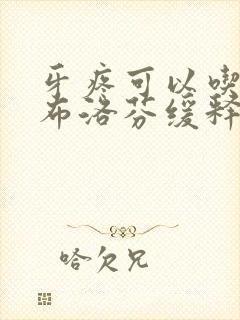 牙疼可以喫
布洛芬缓释
哈欠兄